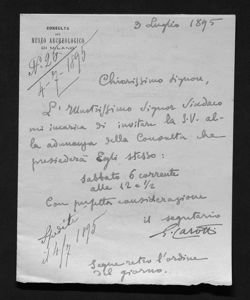 CONSULTA
DEL
MUSEO ARCHEOLOGICO
DI MILANO
3 Luglio 1895
N. 26
4-7-1895
Chiarissimo Signore,
L'Illustrissimo Signor Sindaco
mi incarica di invitare la S.V. al-
la adunanza della Consulta che
presiederà Egli stesso:
sabbato 6 corrente
alle 12 e ½
Con perfetta considerazione
il segretario
G. Carotti
Spedite
il 4/7 1895
Segue retro l'ordine
del giorno.